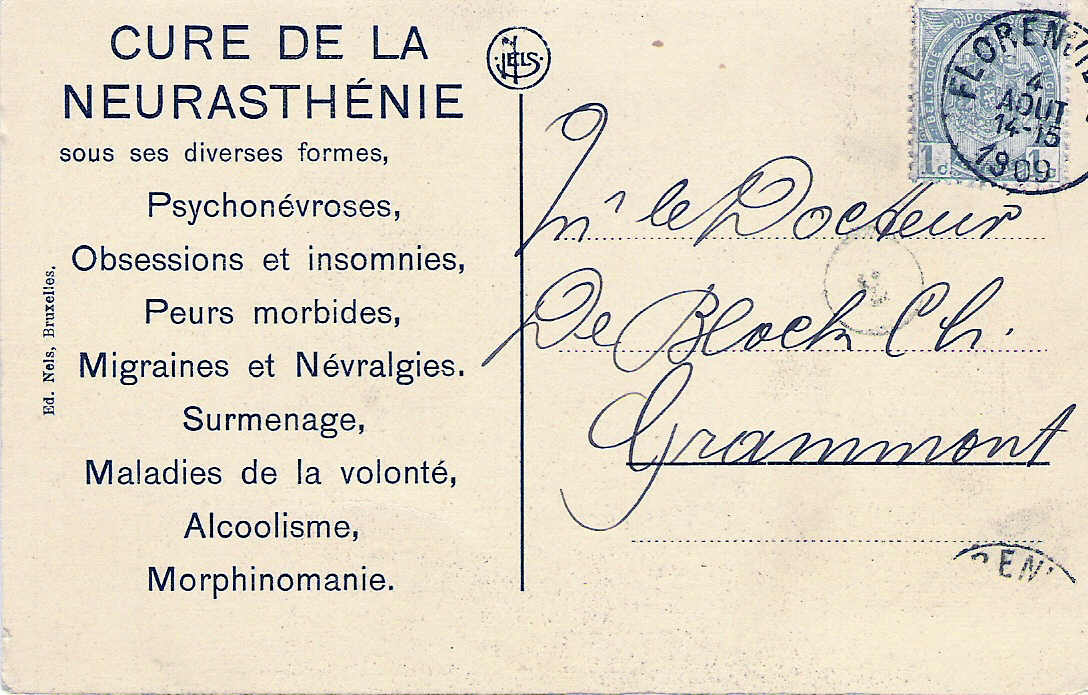 CURE DE LA
NEURASTHÉNIE
sous ses diverses formes,
Psychonévroses,
Obsessions et insomnies,
Peurs morbides,
Migraines et Névralgies.
Surmenage,
Maladies de la volonté,
Alcoolisme,
Morphinomanie.
Ed. Nels, Bruxelles.
NELS
BELGIQUE
1c 1c
FLORENVIL
4
AOUT
14-15
1909
Mr le Docteur
De Block Ch.
Grammont
OREN